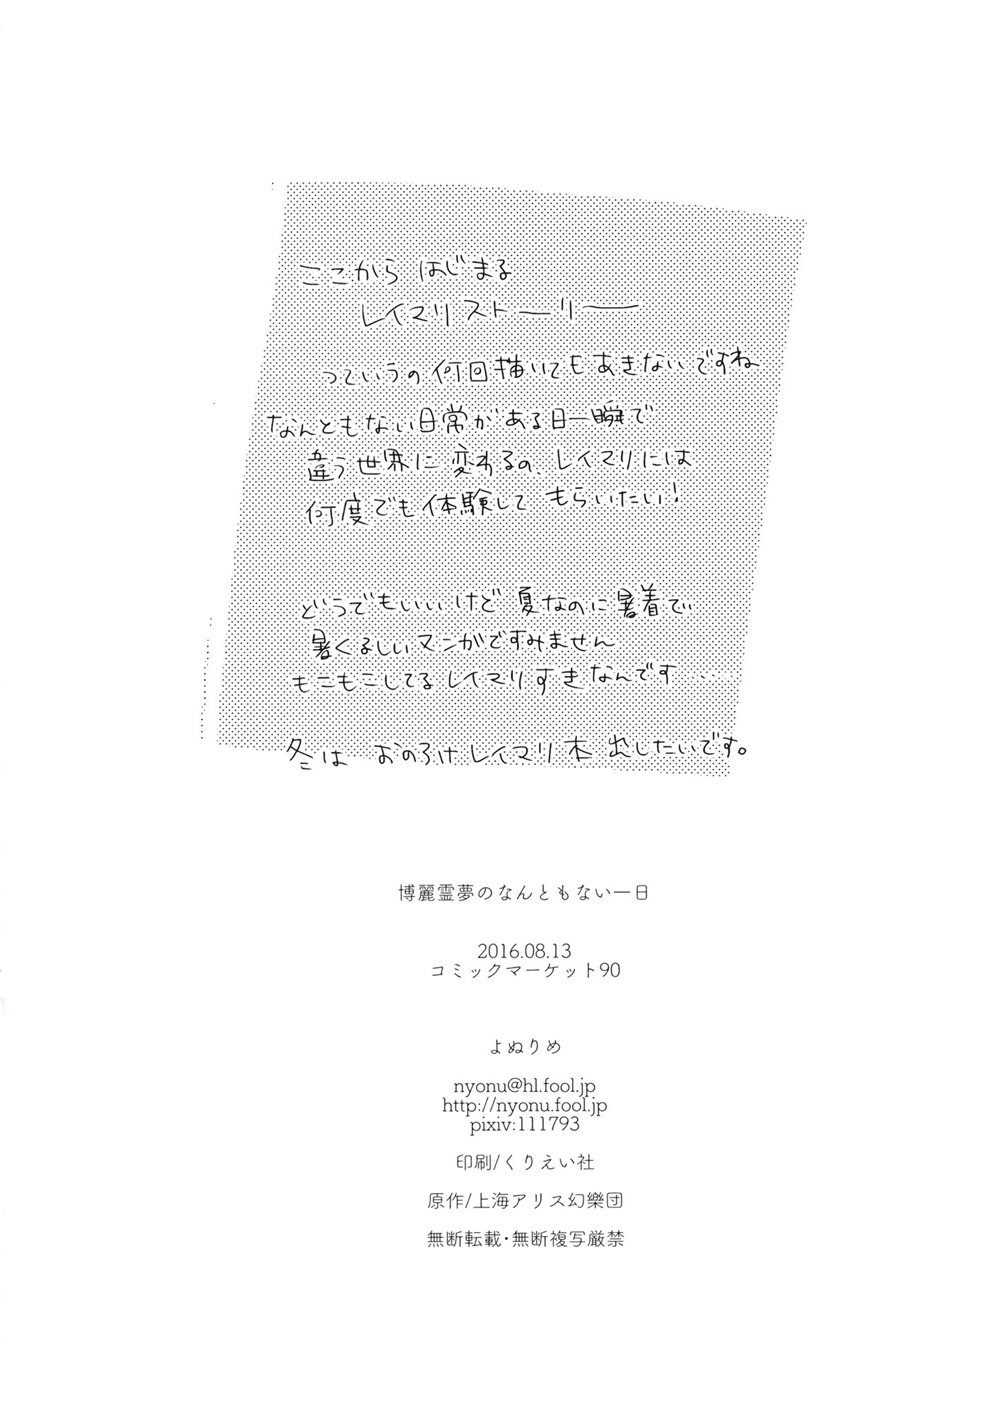 ここから はじまる
レイマリストーリー
っていうの何回描いてもあきないですね
なんともない日常がある日一瞬で
違う世界に変わるの、レイマリには
何度でも体験して もらいたい!
どうでもいいけど 夏なのに暑着で
暑くるしいマンガですみません
もこもこしてるレイマリすきなんです.....
冬は おのろけレイマリ本 出したいです。
博麗霊夢のなんともない一日
2016.08.13
コミックマーケット90
よぬりめ
nyonu@hl.fool.jp
http://nyonu.fool.jp
pixiv:111793
印刷/くりえい社
原作/上海アリス幻樂団
無断転載・無断複写厳禁